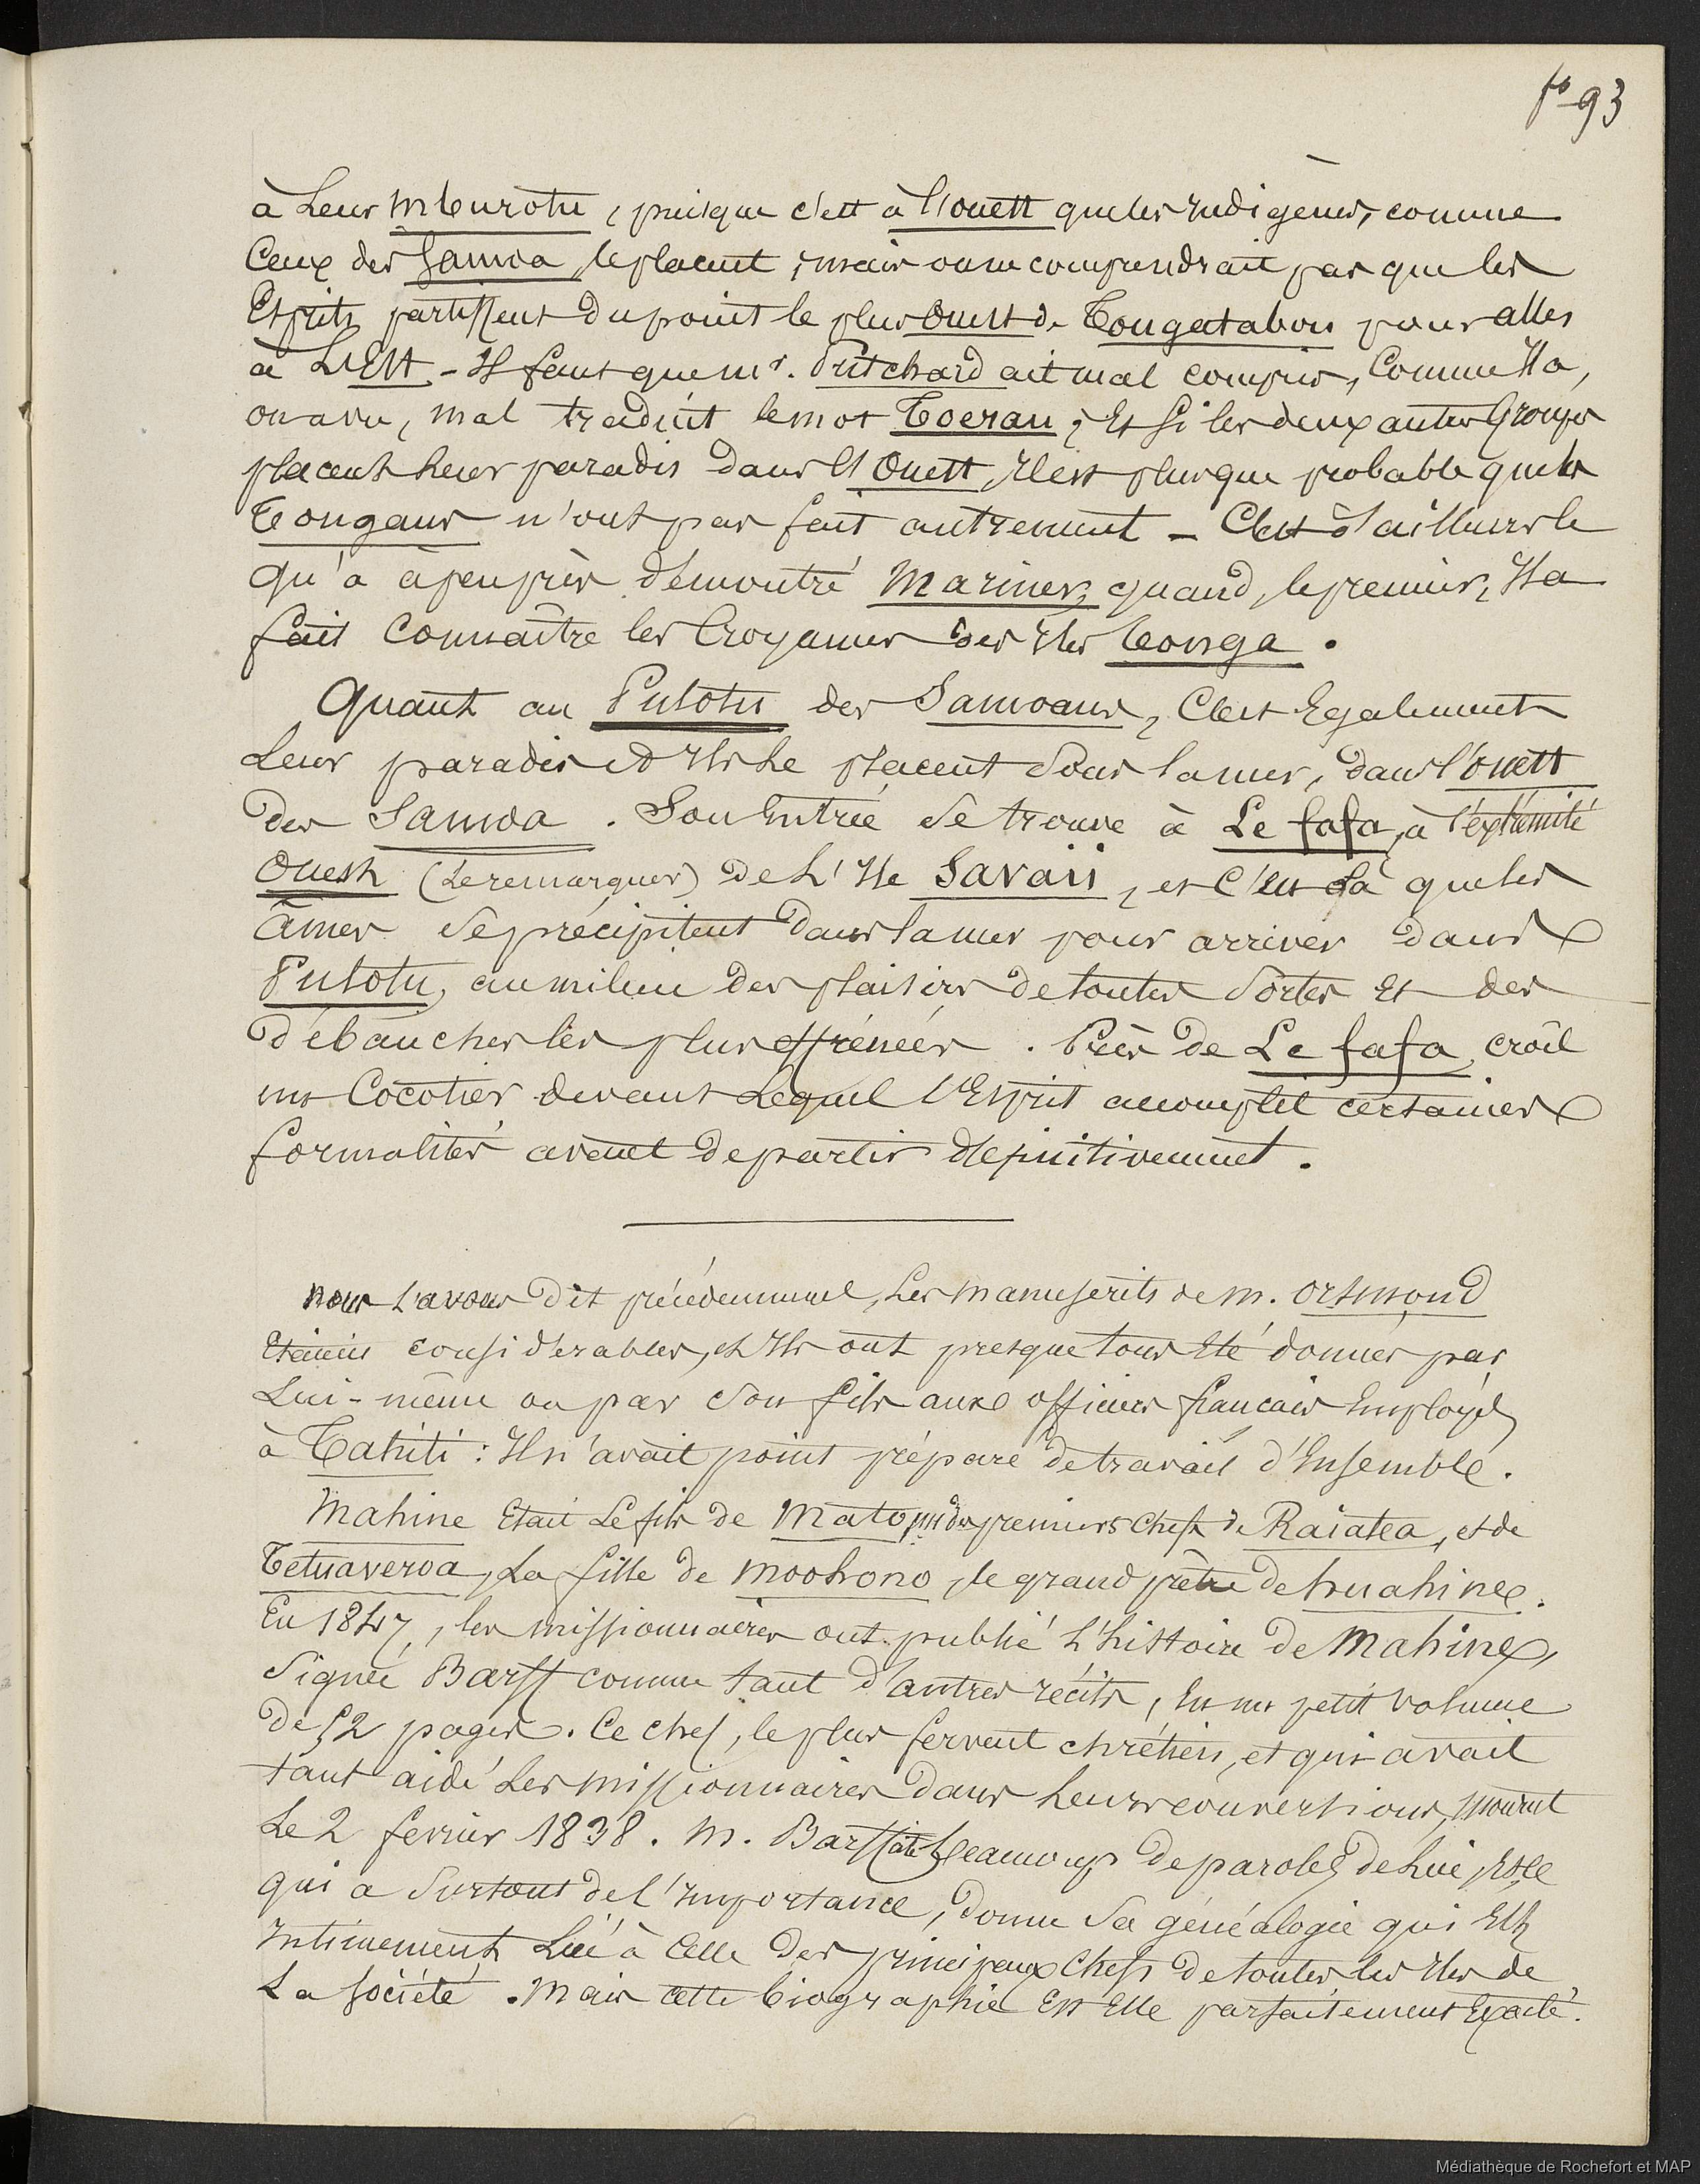 fo 93
à Leur Mburotu, puisque c'est à l'ouest que les Indigènes, comme
Ceux des Samoa, le placent; mais on ne comprendrait pas que les
Esprits partissent du point le plus Ouest de Tongatabou pour aller
à L'Est - Il faut que Mr. Pritchard ait mal compris, Comme Il a,
on a vu, mal traduit le mot Toerau; Et Si les deux autres Groupes
placent leur paradis dans l'Ouest, Il est plus que probable que les
Tongans n'ont pas fait autrement - C'est d'ailleurs ce
qu'a à peu près démontré Mariner, quand, le premier, Il a
fait Connaître les Croyances des Iles Tonga.
Quant au Pulotu des Samoans, C'est Egalement
Leur paradis et Ils Le placent Sous la mer, dans l'ouest
des Samoa. Son Entrée Se trouve à Le fafa, à l'éxtrémité
Ouest (Le remarquer) de L'Ile Savaii, et c'est là que les
âmes Se précipitent dans la mer pour arriver dans
Pulotu, au milieu des plaisirs de toutes Sortes Et des
débauches les plus effrénées. Près de Le fafa, croît
un Cocotier devant Lequel l'Esprit accomplit certaines
formalités avant de partir définitivement.
Nous L'avons Dit précédemment, Les Manuscrits de M. Orsmond
Etaient considérables, et Ils ont presque tous Eté donnés par
Lui-même ou par Son fils aux officiers français Employés
à Tahiti: Il n'avait point préparé de travail d'Ensemble.
Mahine Etait Le fils de Mato, un des premiers Chefs de Raiatea, et de
Tetuaveroa, La fille de Moohono, le grand prêtre de huahine.
En 1847, les missionnaires ont publié L'histoire de Mahine,
Signée Barff comme tant d'autres récits, En un petit volume
De 52 pages. Ce chef, le plus fervent chrétien, et qui avait
tant aidé Les missionnaires dans Leurs conversions, mourut
Le 2 février 1838. M. Barff cite beaucoup de paroles de Lui, Et, ce
qui a Surtout de l'Importance, donne Sa généalogie qui Est
Intimement Liée à Celle des principaux Chefs de toutes les Iles de
La Société. Mais cette biographie Est Elle parfaitement Exacte.
Médiathèque de Rochefort et MAP